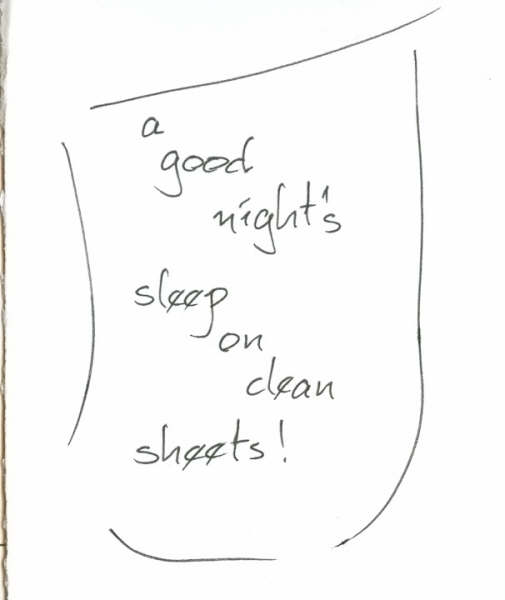 a
good
night's
sleep
on
clean
sheets!